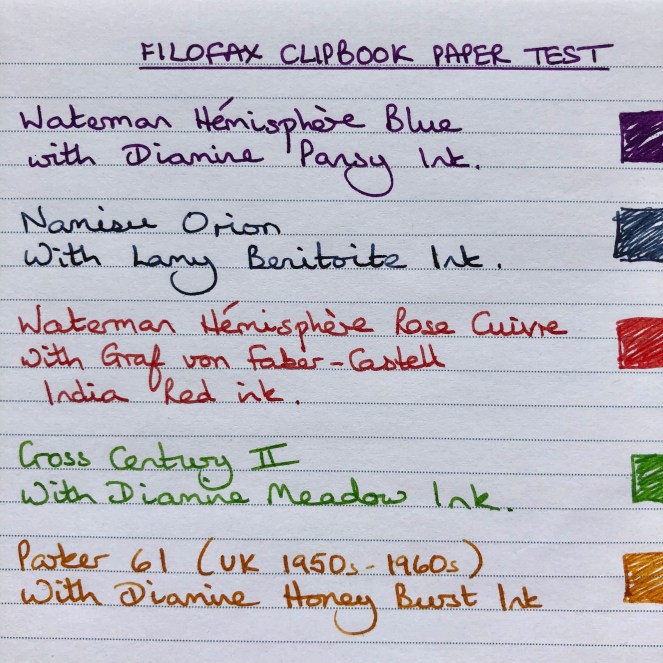 FILOFAX CLIPBOOK PAPER TEST
Waterman Hémisphère Blue
with Diamine Pansy Ink.
Namisu Orion
With Lamy Benitoite Ink.
Waterman Hémisphère Rose Cuivre
with Graf von Faber-Castell
India Red ink.
Cross Century II
With Diamine Meadow Ink.
Parker 61 (UK 1950s-1960s)
With Diamine Honey Burst Ink